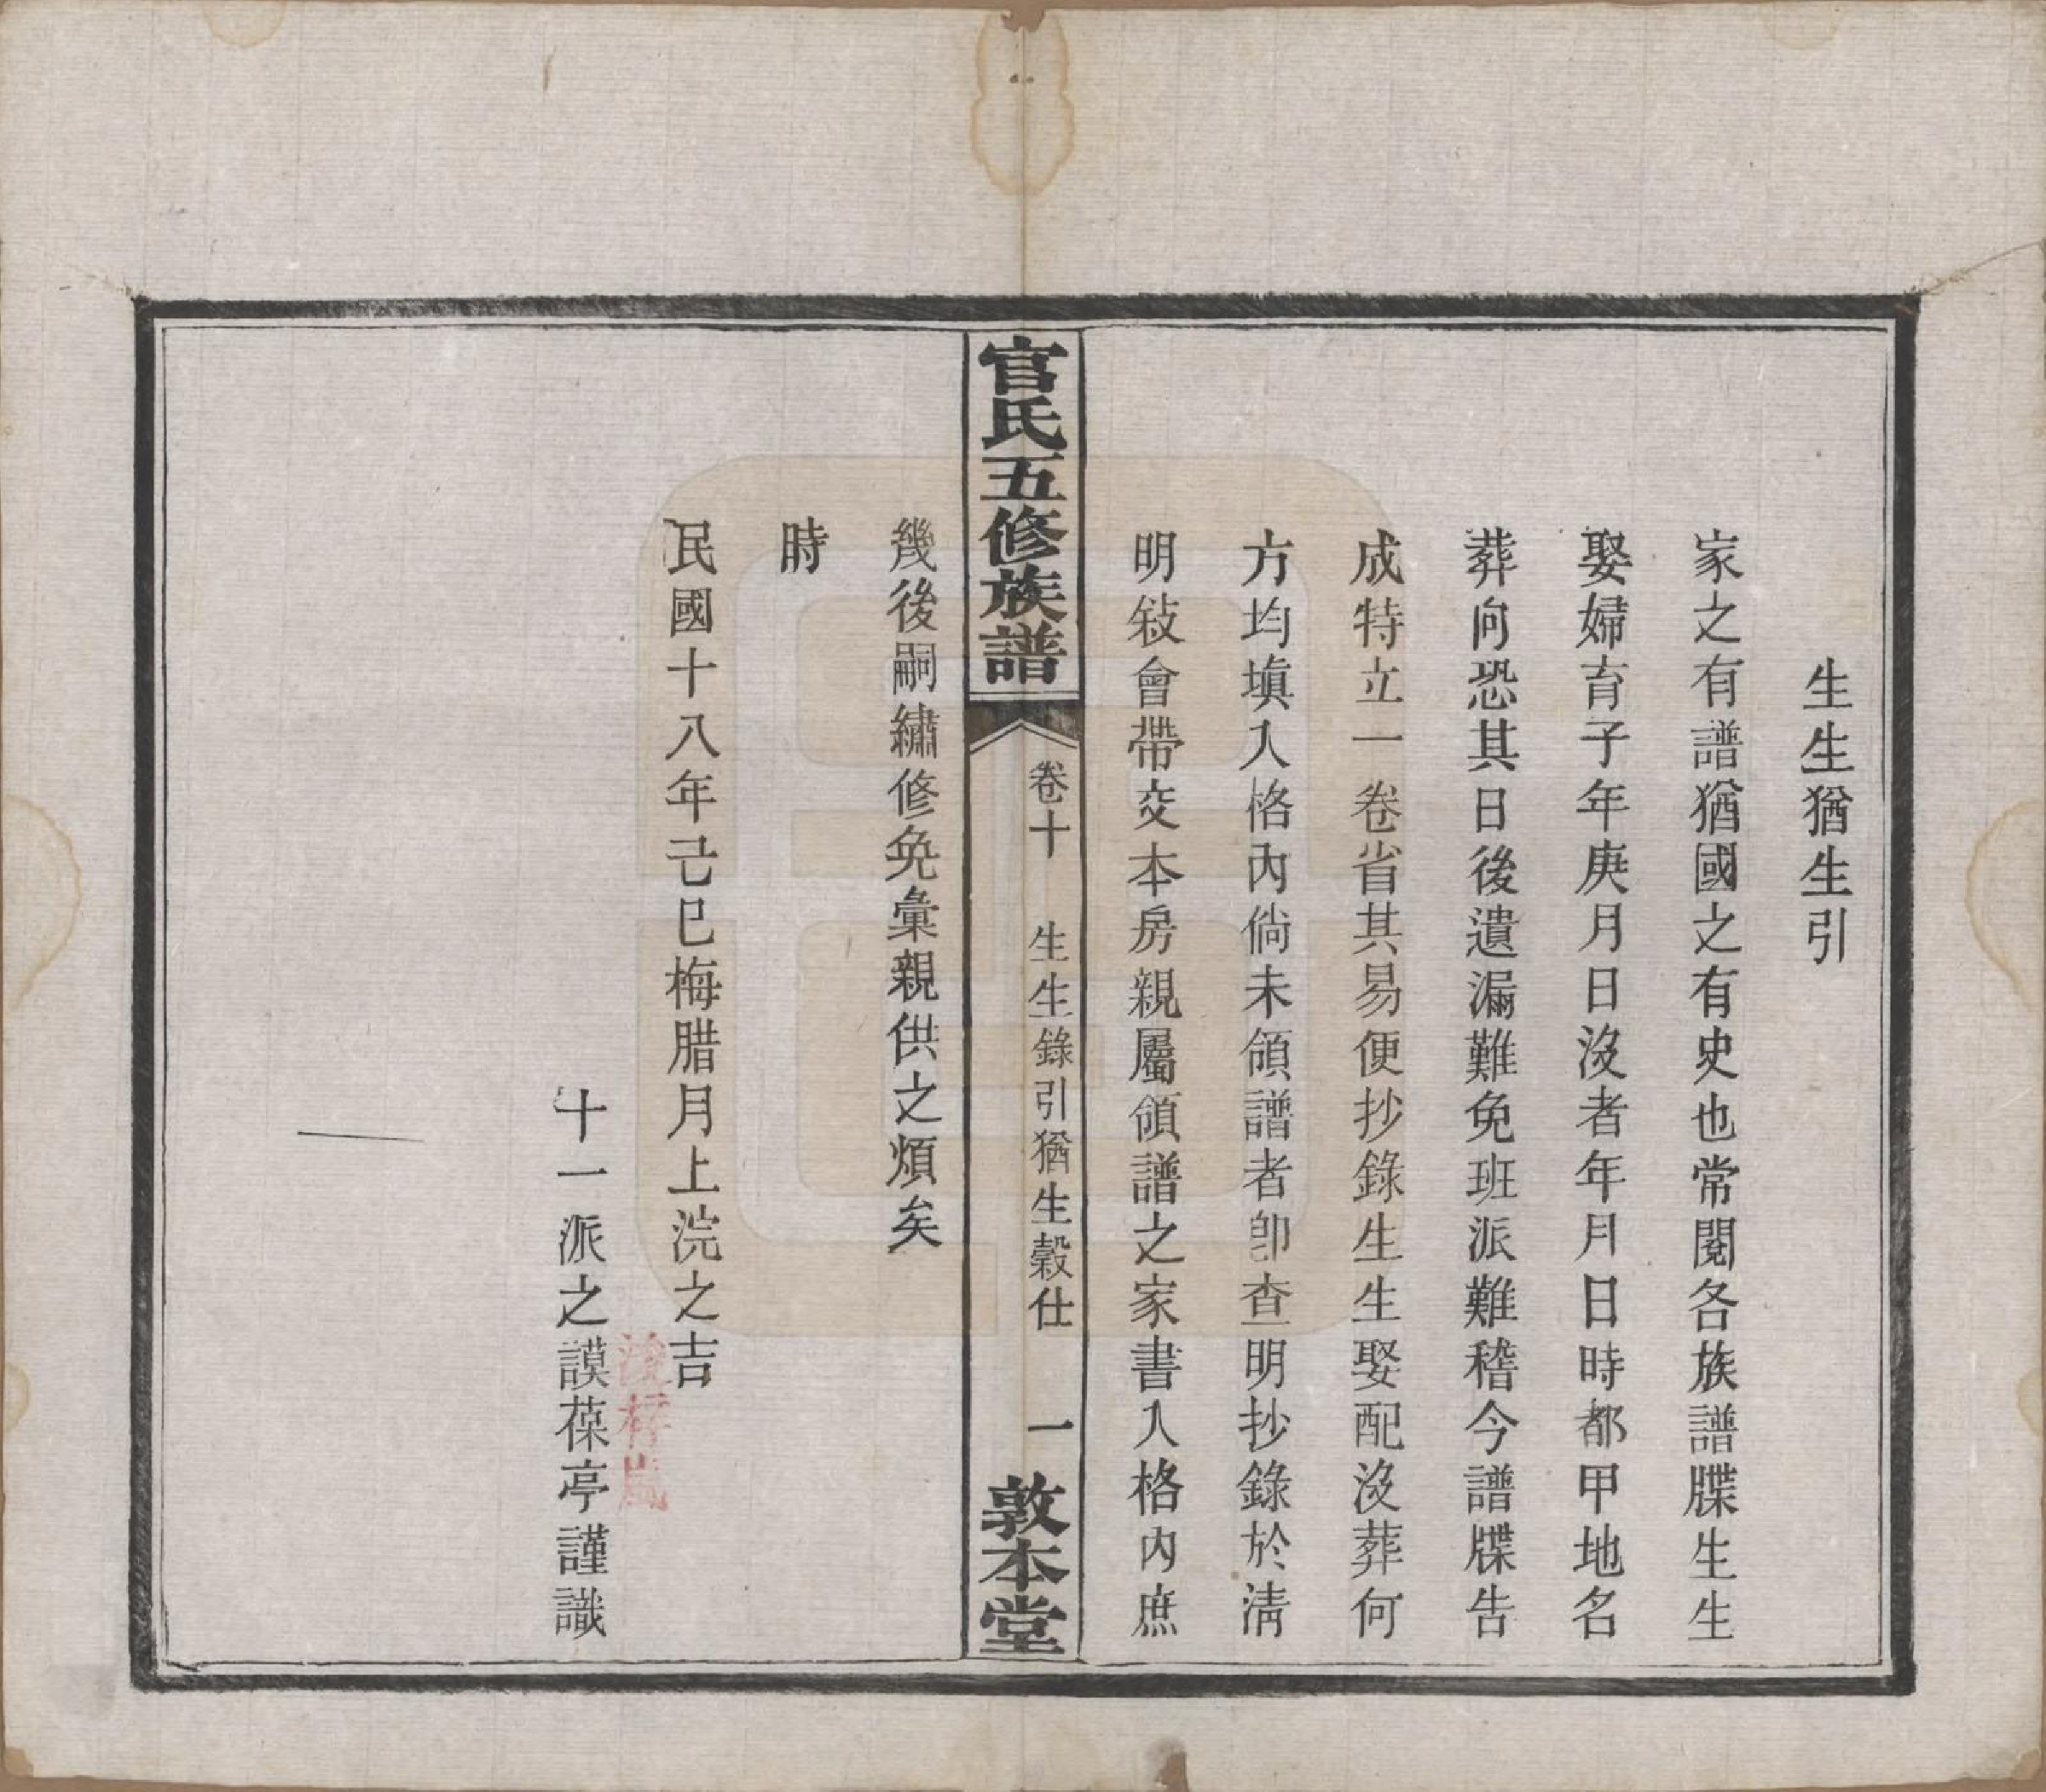 生生猶生引
家之有譜猶國之有史也常閱各族譜牒生生
娶婦育子年庚月日沒者年月日時都甲地名
葬向恐其日後遺漏難免班派難稽今譜牒告
成特立一卷省其易便抄錄生生娶配沒葬何
方均填入格內倘未領譜者卽查明抄錄於淸
明敍會帶交本房親屬領譜之家書入格內庶
官氏五修族譜
卷十 生生錄引猶生穀仕 一
敦本堂
幾後嗣繡修免彙親供之煩矣
時
民國十八年己巳梅腊月上浣之吉
十一派之謨葆亭謹識